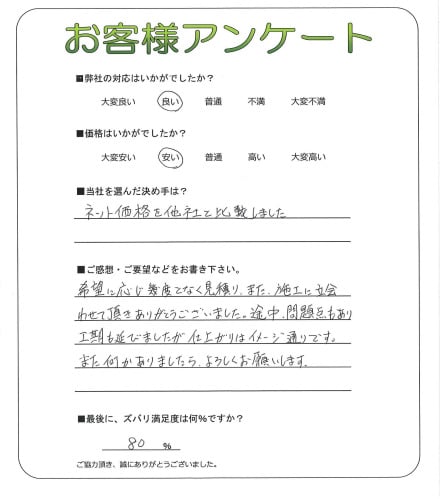 お客様アンケート
■弊社の対応はいかがでしたか？
大変良い 良い 普通 不満 大変不満
■価格はいかがでしたか？
大変安い 安い 普通 高い 大変高い
■当社を選んだ決め手は？
ネット価格を他社と比較しました
■ご感想・ご要望などをお書き下さい。
希望に応じ幾度となく見積り、また、施工に立会
わせて頂きありがとうございました。途中、問題点もあり
工期も延びましたが仕上がりはイメージ通りです。
また何かありましたら、よろしくお願いします。
■最後に、ズバリ満足度は何％ですか？
80 ％
ご協力頂き、誠にありがとうございました。